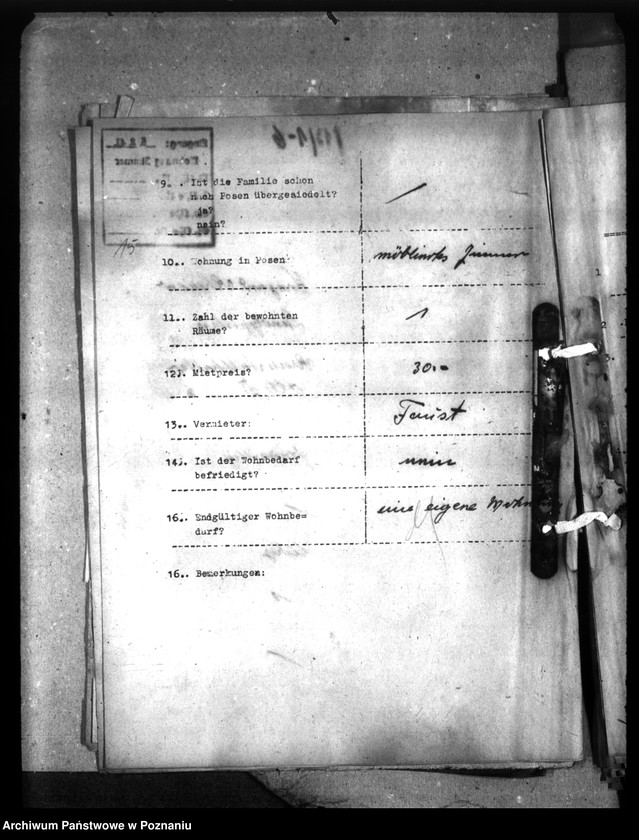 9.. Ist die Familie schon
nach Posen übergesiedelt?
ja?
nein?
15
10.. Wohnung in Posen: möbliertes Zimmer
11.. Zahl der bewohnten
Räume? 1
12.. Mietpreis? 30.-
13.. Vermieter: Faust
14.. Ist der Wohnbedarf
befriedigt? nein
16.. Endgültiger Wohnbe= eine eigene Wohn
darf?
16.. Bemerkungen:
1.
2
3.
Archiwum Państwowe w Poznaniu